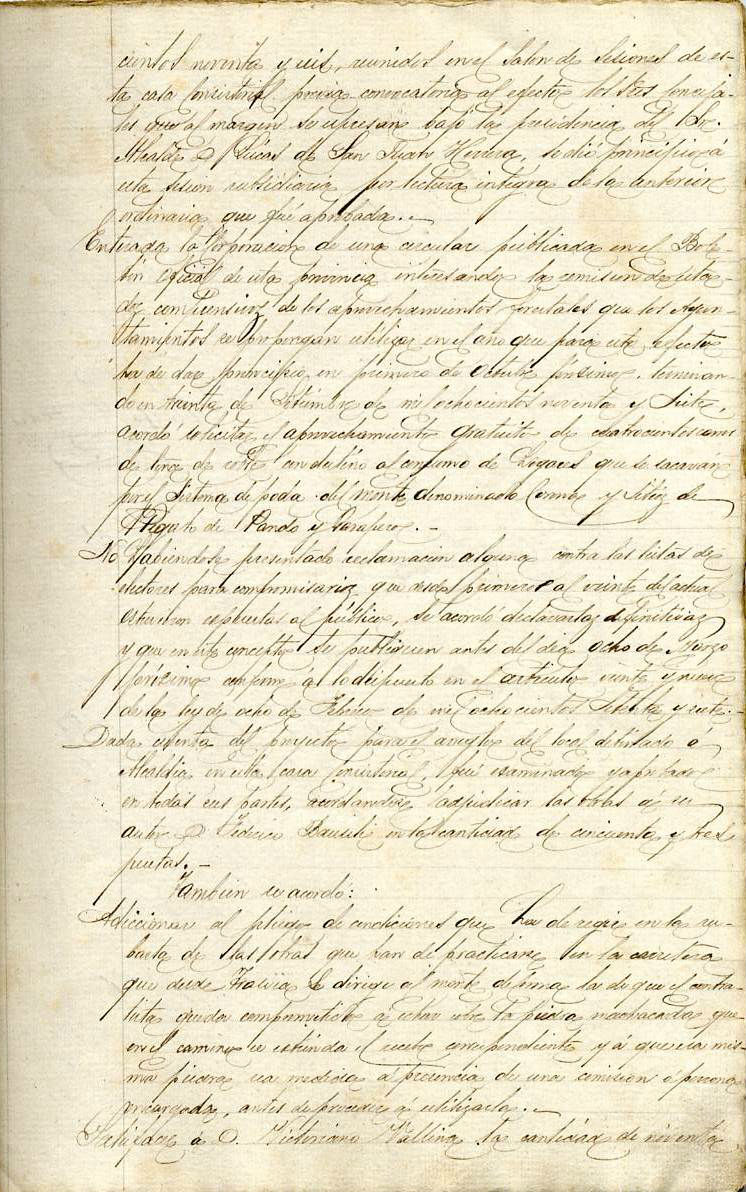 cientos noventa y seis, reunidos en el Salon de sesiones de es-
ta casa Consistorial previa convocatoria al efecto los Sres conceja-
les que al margen se espresan bajo la presidencia del Sr.
Alcalde D. Lucas de San Juan Herrera, se dió principio á
esta sesion subsidiaria por lectura integra de la anterior
ordinaria que fué aprobada.-
Enterada la Corporacion de una circular publicada en el Bole-
tin oficial de esta provincia interesando la remision de esta-
do comprensivo de los aprovechamientos forestales que los Ayun-
tamientos se propongan utilizar en el año que para este efecto
ha de dar principio en primero de Octubre próximo, terminan-
do en treinta de Setiembre de mil ochocientos noventa y siete,
acordó solicitar el aprovechamiento gratuito de cuatrocientos carros
de leña de roble con destino al consumo de hogares que se sacarán
por el Sistema de poda del monte denominado y de
de Pando y
No habiendose presentado reclamacion alguna contra las listas de
electores para compromisarios que desde primero al veinte del actual
estuvieron espuestas al público, se acordó declararlas definitivas
y que en este concepto se publiquen antes del dia ocho de Marzo
próximo conforme á lo dispuesto en el articulo veinte y nueve
de la ley de ocho de Febrero de mil ochocientos setenta y siete.-
Dada cuenta del proyecto para el arreglo del local destinado á
Alcaldia en esta casa Consistorial, fué examinado y aprobado
en todas sus partes, acordandose adjudicar las obras á su
autor D. Federico en la cantidad de cincuenta y tres
pesetas.-
Tambien se acordó:
Adiccionar al pliego de condiciones que ha de regir en la su-
basta de las obras que han de practicarse en la carretera
que desde se dirige al monte de la de que el contra-
tista queda comprometido á echar sobre la piedra machacada que
en el camino se estienda el recebo correspondiente y á que esa mis-
ma piedra sea medida á presencia de una comision o persona
encargada, antes de proceder á utilizarla.-
Satisfacer á D. Victoriano Mallina la cantidad de noventa